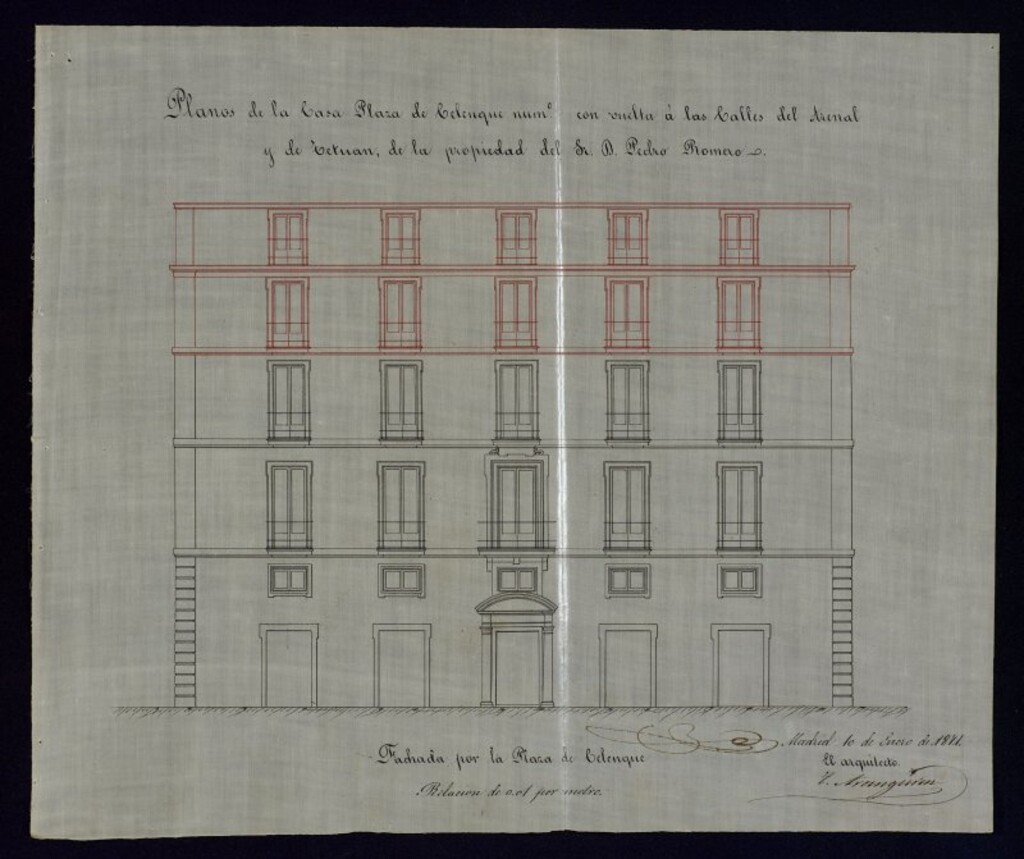 Planos de la Casa Plaza de Celenque numº con vuelta á las Calles del Arenal
y de Tetuan, de la propiedad del Sr. D. Pedro Romero
Fachada por la Plaza de Celenque
Relacion de 0.01 por metro.
Madrid 10 de Enero de 1871.
El arquitecto.
T. Aranguren